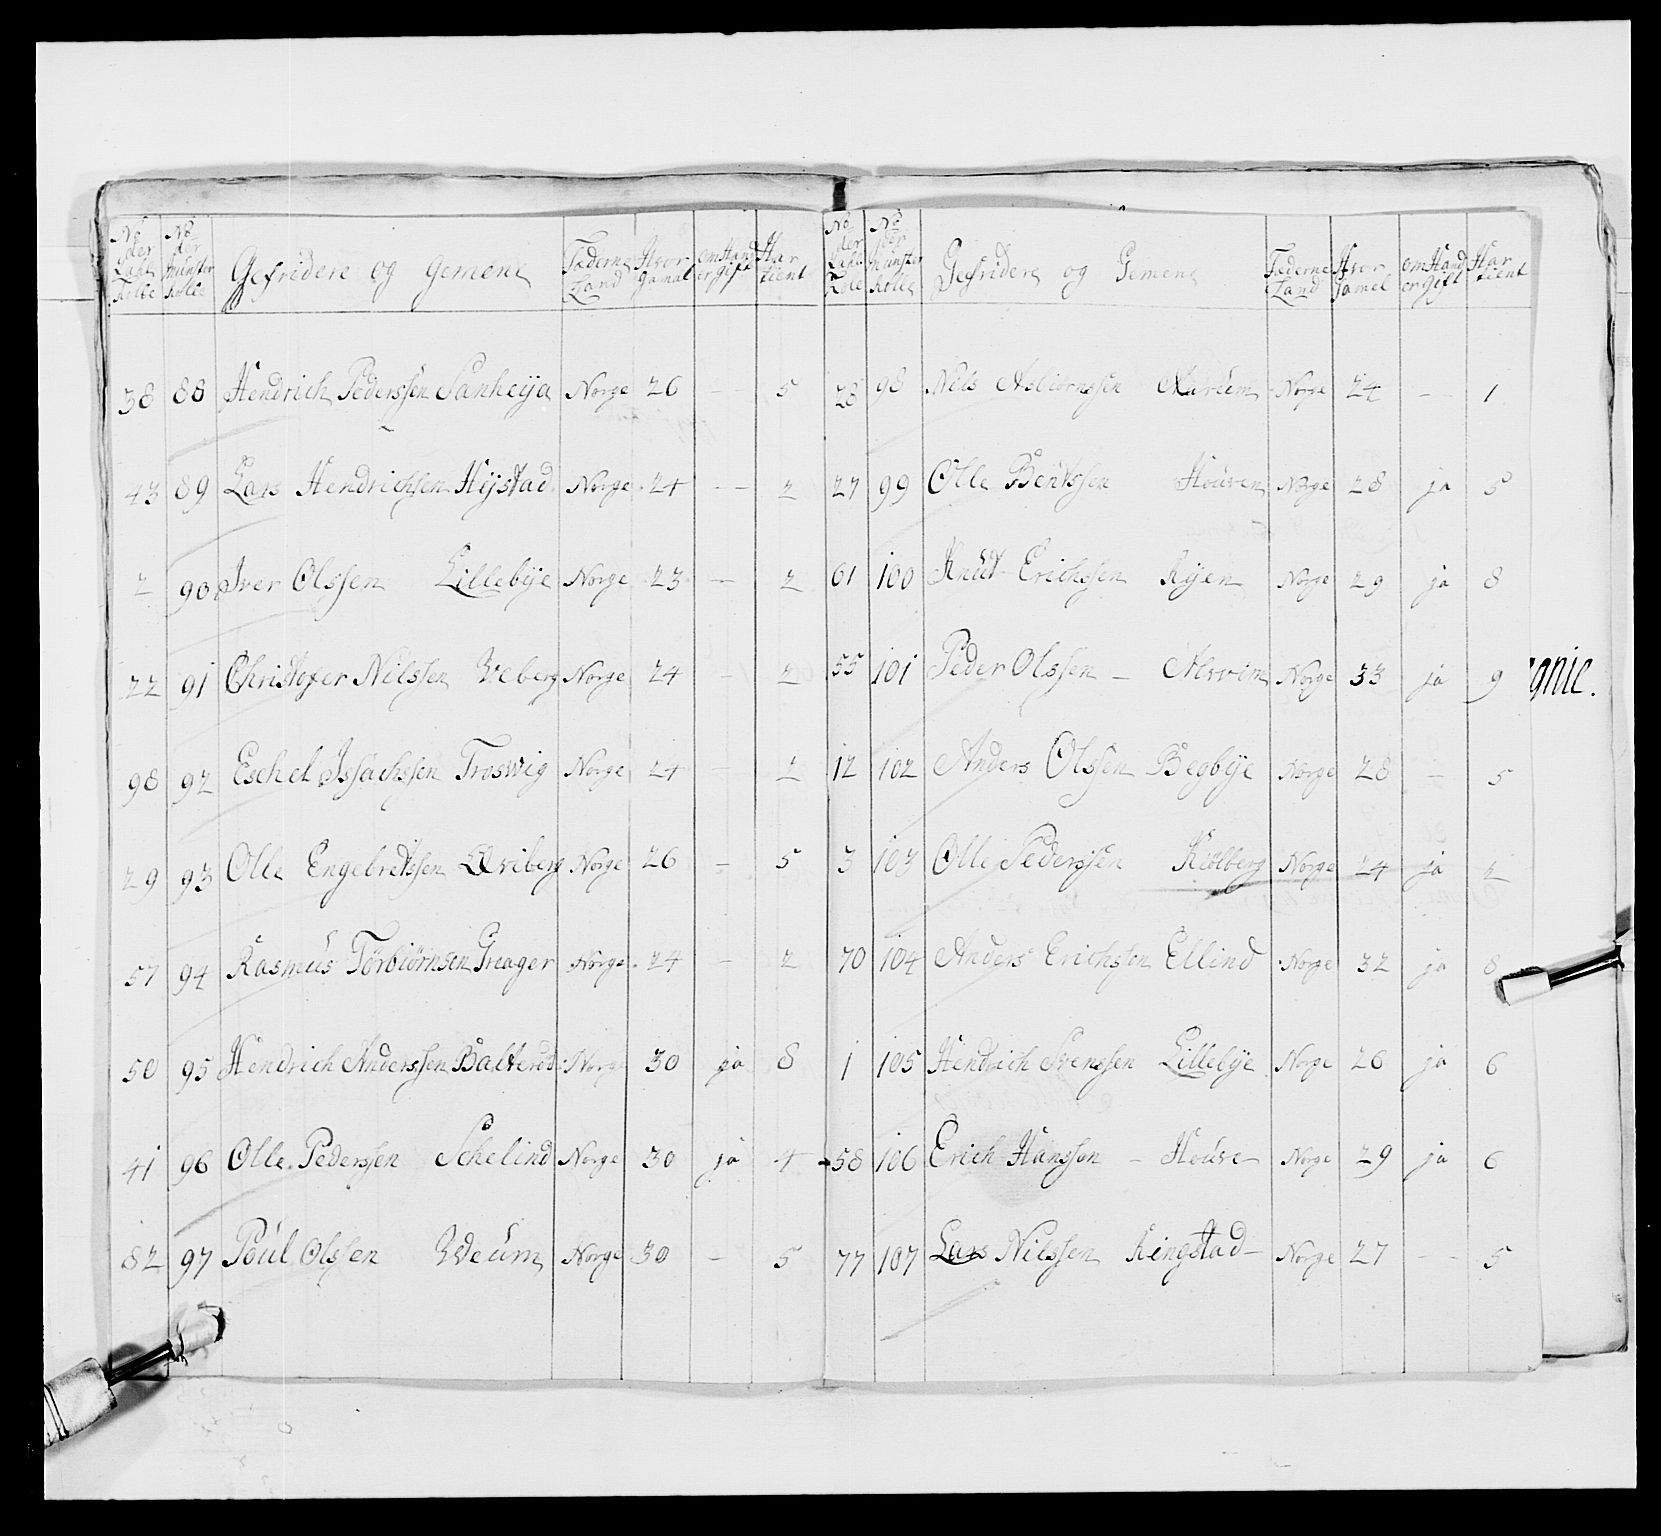 No der Land Rolle | No der Munster Rolle | Gefridere og Gemene | Fæderne Land | Hvor Gamal | om Hand er Gift | Har tient
38 | 88 | Hendrich Pederssen Sanheija | Norge | 26 | — | 5
43 | 89 | Lars Hendrichsen Heijstad | Norge | 24 | — | 2
2 | 90 | Iver Olssen Lillebije | Norge | 23 | — | 2
22 | 91 | Christofer Nilssen Veberg | Norge | 24 | — | 2
98 | 92 | Eschel Issachssen Troswig | Norge | 24 | — | 2
29 | 93 | Olle Engebretssen Qviberg | Norge | 26 | — | 5
57 | 94 | Rasmus Torbiörnsen Greager | Norge | 24 | — | 2
50 | 95 | Hendrich Anderssen Balterød | Norge | 30 | ja | 8
41 | 96 | Olle Pederssen Schelind | Norge | 30 | ja | 4
82 | 97 | Poul Olssen Weum | Norge | 30 | — | 5
No der Land Role | No der Munster Rolle | Gefridere og Gemene | Fæderne Land | Hvor Gamel | om Hand er Gift | Har tient
28 | 98 | Nels Asbiornssen Narum | Norge | 24 | — | 1
27 | 99 | Olle Bentssen Houven | Norge | 28 | ja | 5
61 | 100 | Knut Erichssen Rijen | Norge | 29 | ja | 8
55 | 101 | Peder Olssen — Alwim | Norge | 33 | ja | 9
12 | 102 | Anders Olssen Begbije | Norge | 28 | — | 5
3 | 103 | Olle Pederssen Kiölberg | Norge | 24 | ja | 2
70 | 104 | Anders Erichsen Ellind | Norge | 32 | ja | 8
1 | 105 | Hendrich Svenssen Lillebije | Norge | 26 | ja | 6
58 | 106 | Erich Hanssen — Houve | Norge | 29 | ja | 6
77 | 107 | Lars Nilssen Ringstad | Norge | 27 | — | 5
gnie.